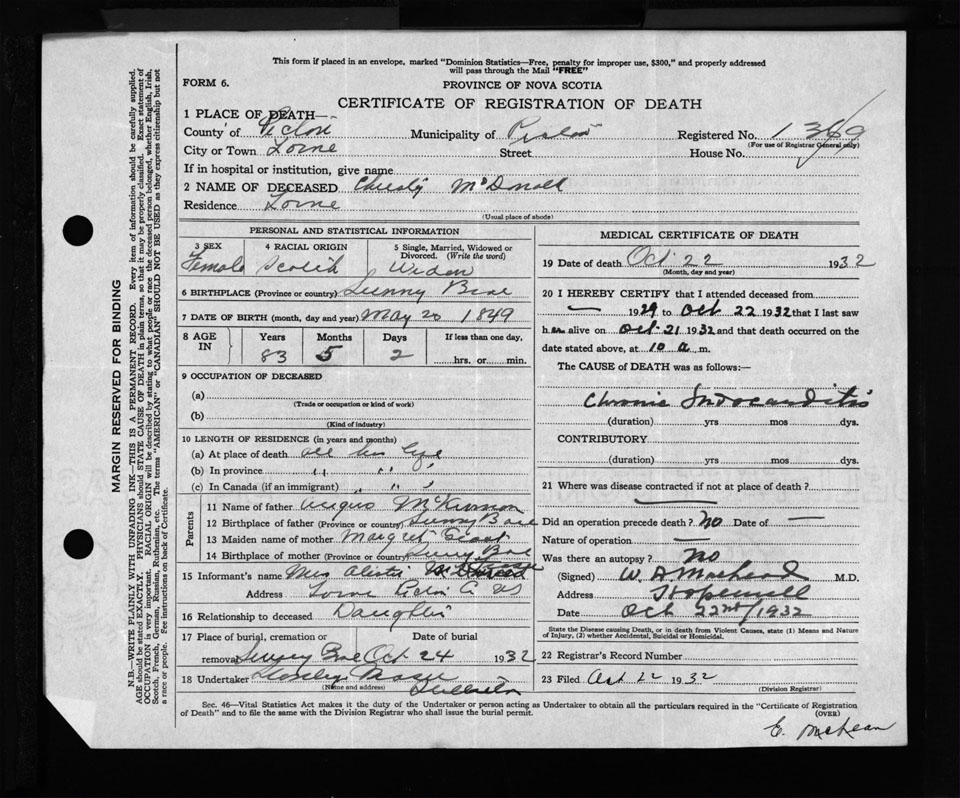 This form if placed in an envelope, marked "Dominion Statistics—Free, penalty for improper use, $300," and properly addressed
will pass through the Mail "FREE"
FORM 6.
PROVINCE OF NOVA SCOTIA
CERTIFICATE OF REGISTRATION OF DEATH
1 PLACE OF DEATH—
County of Pictou Municipality of Pictou Registered No. 1369
(For use of Registrar General only)
City or Town Lorne Street House No.
If in hospital or institution, give name
2 NAME OF DECEASED Christy McDonald
Residence Lorne
(Usual place of abode)
PERSONAL AND STATISTICAL INFORMATION
3 SEX 4 RACIAL ORIGIN 5 Single, Married, Widowed or
Divorced. (Write the word)
Female Scotch Widow
6 BIRTHPLACE (Province or country) Sunny Brae
7 DATE OF BIRTH (month, day and year) May 20 1849
8 AGE IN Years Months Days If less than one day,
83 5 2 hrs. or min.
9 OCCUPATION OF DECEASED
(a)
(Trade or occupation or kind of work)
(b)
(Kind of industry)
10 LENGTH OF RESIDENCE (in years and months)
(a) At place of death all her life
(b) In province " " "
(c) In Canada (if an immigrant) " " "
Parents
11 Name of father Angus McKinnon
12 Birthplace of father (Province or country) Sunny Brae
13 Maiden name of mother Margret
14 Birthplace of mother (Province or country) Sunny Brae
15 Informant's name Mrs
Address Lorne Pictou Co NS
16 Relationship to deceased Daughter
17 Place of burial, cremation or Date of burial
removal Sunny Brae Oct 24 1932
18 Undertaker
(Name and address)
MEDICAL CERTIFICATE OF DEATH
19 Date of death Oct 22 1932
(Month, day and year)
20 I HEREBY CERTIFY that I attended deceased from
— 1929 to Oct 22 1932 that I last saw
her alive on Oct 21 1932 and that death occurred on the
date stated above, at 10 a.m.
The CAUSE OF DEATH was as follows:—
Chronic Endocarditis
(duration) yrs mos dys.
CONTRIBUTORY
(duration) yrs mos dys.
21 Where was disease contracted if not at place of death?
—
Did an operation precede death? No Date of —
Nature of operation —
Was there an autopsy? No
(Signed) M.D.
Address Hopewell
Date Oct 22nd/1932
State the Disease causing Death, or in death from Violent Causes, state (1) Means and Nature
of Injury, (2) whether Accidental, Suicidal or Homicidal.
22 Registrar's Record Number
23 Filed Oct 22 1932
(Division Registrar)
Sec. 46—Vital Statistics Act makes it the duty of the Undertaker or person acting as Undertaker to obtain all the particulars required in the "Certificate of Registration
of Death" and to file the same with the Division Registrar who shall issue the burial permit. (OVER)
E. McLean
MARGIN RESERVED FOR BINDING
N.B.—WRITE PLAINLY WITH UNFADING INK—THIS IS A PERMANENT RECORD. Every item of information should be carefully supplied.
AGE should be stated EXACTLY. PHYSICIANS should STATE CAUSE OF DEATH in plain terms, so that it may be properly classified. Exact statement of
OCCUPATION is very important. RACIAL ORIGIN will be described by stating to what people or race the deceased person belonged, whether English, Irish,
Scotch, French, German, Russian, Ruthenian, etc. The terms "AMERICAN" or "CANADIAN" SHOULD NOT BE USED as they express citizenship but not
a race or people. Fee instructions on back of Certificate.